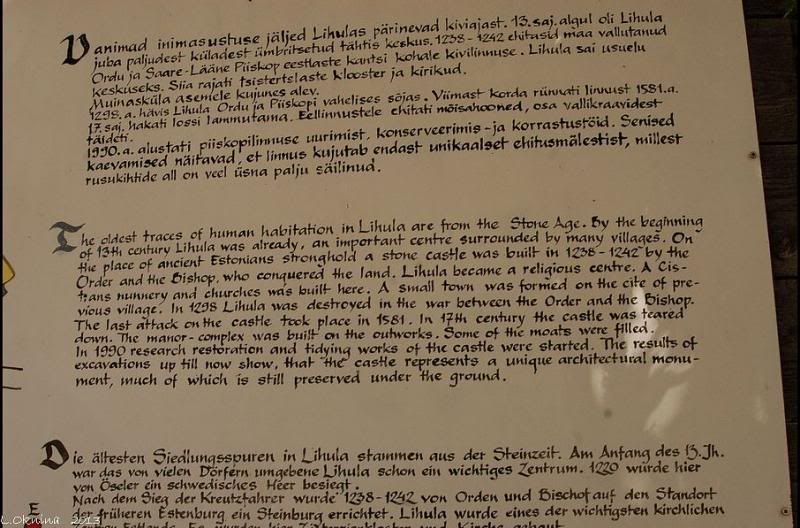 Vanimad inimasustuse jäljed Lihulas pärinevad kiviajast. 13. saj. algul oli Lihula
juba paljudest küladest ümbritsetud tähtis keskus. 1238-1242 ehitasid maa vallutanud
Ordu ja Saare-Lääne Piiskop eestlaste kantsi kohale kivilinnuse. Lihula sai usuelu
keskuseks. Siia rajati tsistertslaste klooster ja kirikud.
Muinasküla asemele kujunes alev.
1298. a. hävis Lihula Ordu ja Piiskopi vahelises sõjas. Viimast korda rünnati linnust 1581. a.
17. saj. hakati lossi lammutama. Eellinnustele ehitati mõisahooned, osa vallikraavidest
täideti.
1990. a. alustati piiskopilinnuse uurimist, konserveerimis-ja korrastustöid. Senised
kaevamised näitavad, et linnus kujutab endast unikaalset ehitusmälestist, millest
rusukihtide all on veel üsna palju säilinud.
The oldest traces of human habitation in Lihula are from the Stone Age. By the beginning
of 13th century Lihula was already, an important centre surrounded by many villages. On
the place of ancient Estonians stronghold a stone castle was built in 1238-1242 by the
Order and the Bishop, who conquered the land. Lihula became a religious centre. A Cis-
trans nunnery and churches was built here. A small town was formed on the cite of pre-
vious village. In 1298 Lihula was destroyed in the war between the Order and the Bishop.
The last attack on the castle took place in 1581. In 17th century the castle was teared
down. The manor-complex was built on the outworks. Some of the moats were filled.
In 1990 research restoration and tidying works of the castle were started. The results of
excavations up till now show, that the castle represents a unique architectural monu-
ment, much of which is still preserved under the ground.
Die ältesten Siedlungsspuren in Lihula stammen aus der Steinzeit. Am Anfang des 13. Jh.
war das von vielen Dörfern umgebene Lihula schon ein wichtiges Zentrum. 1220 wurde hier
von Öseler ein schwedisches Heer besiegt.
Nach dem Sieg der Kreutzfahrer wurde 1238-1242 von Orden und Bischof auf den Standort
der früheren Estenburg ein Steinburg errichtet. Lihula wurde eines der wichtigsten kirchlichen
E
L.Oknina 2013